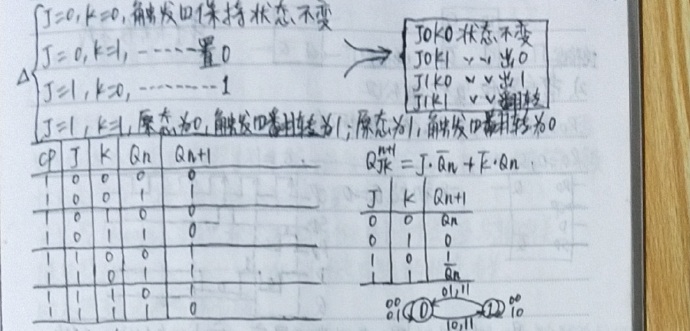 J=0, K=0, 触发器保持状态不变
J=0, K=1, ------置0
Δ J=1, K=0, --------1
J=1, K=1, 原态为0, 触发器翻转为1; 原态为1, 触发器翻转为0
J0K0 状态不变
J0K1 〃 〃 出0
J1K0 〃 〃 出1
J1K1 〃 〃 翻转
CP J K Qn Qn+1
1 0 0 0 0
1 0 0 1 1
1 0 1 0 0
1 0 1 1 0
1 1 0 0 1
1 1 0 1 1
1 1 1 0 1
1 1 1 1 0
Q^{n+1}_{JK} = J·Q̅n + K̅·Qn
J K Qn+1
0 0 Qn
0 1 0
1 0 1
1 1 Q̅n
01,11
00 01 0 1 00 10
10,11